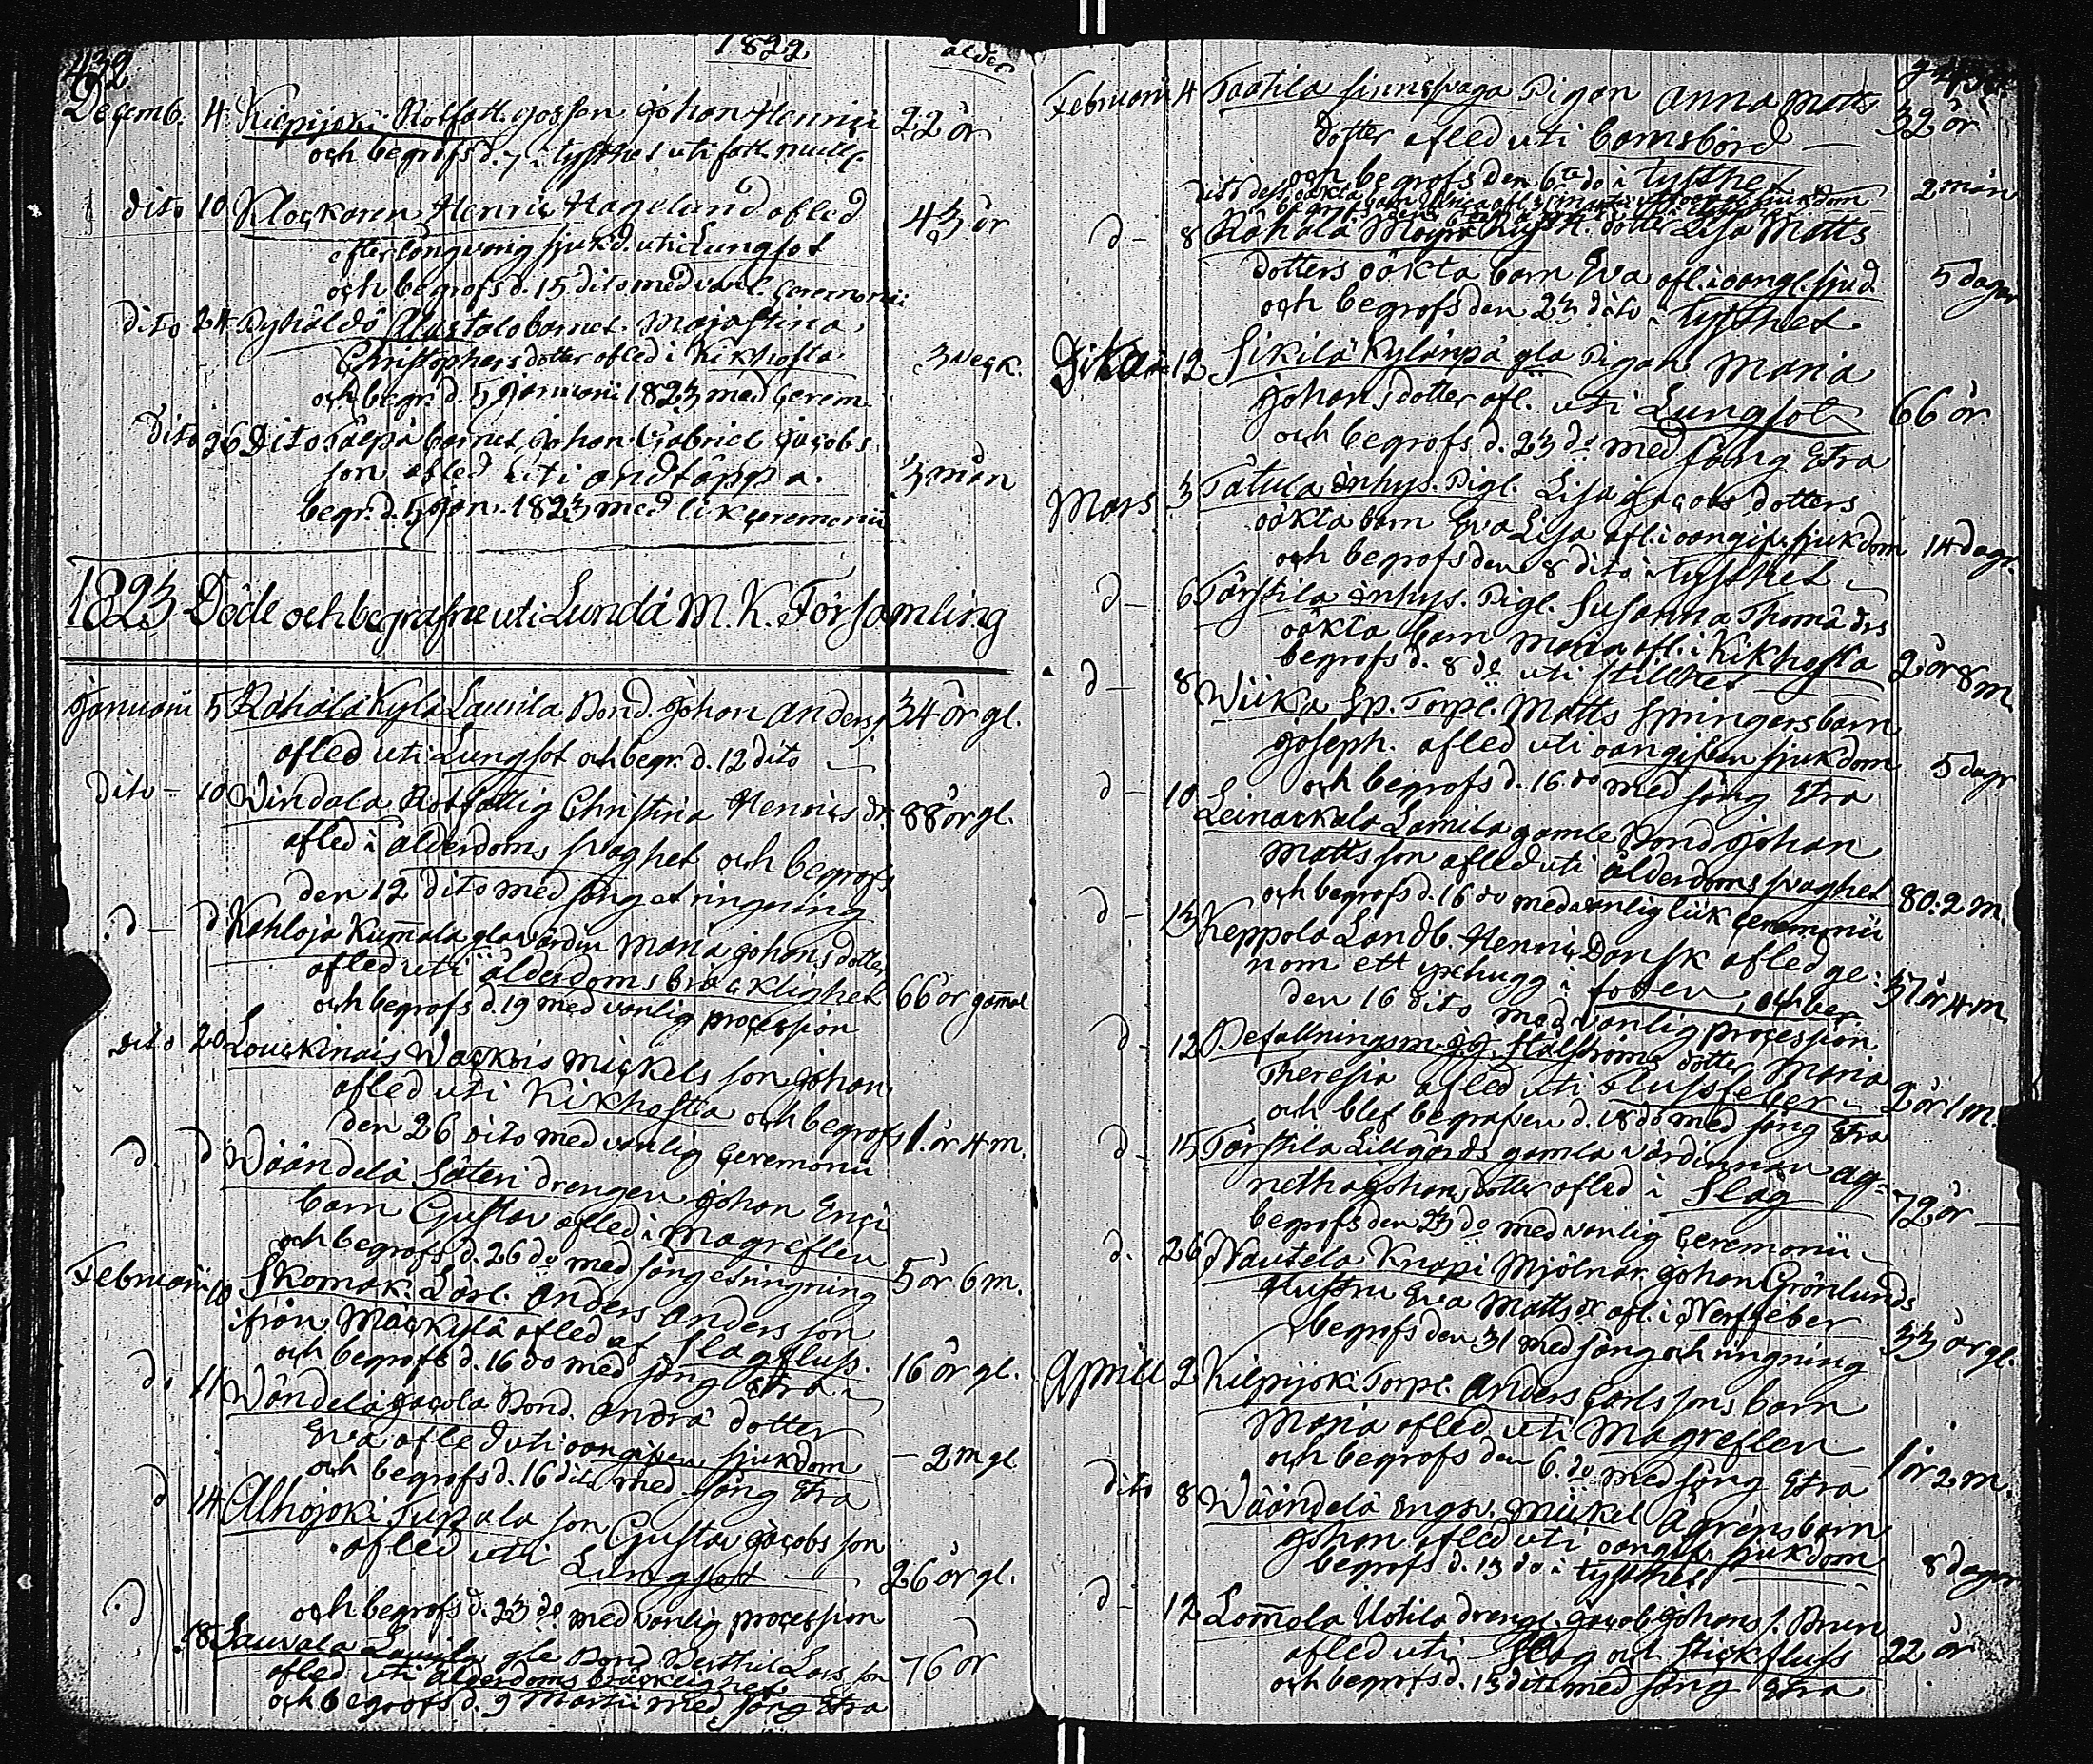 432.
1822 ålder
Decemb. 4 Kilpijoki Rotfatt. gossen Johan Henrici 22 år
och begrofs d. 7 i tysthet uti fatt.
dito 10 Klockaren Henric Hagelund afled 43 år
efter långvarig sjukd. uti Lungsot
och begrofs d. 15 dito med vanl. ceremonie
dito 24 Pyhäldö Alastalo barnet. Maja Stina
Christophers dotter afled i Kikhosta 3 veck.
och begr. d. 5 Januarii 1823 med cerem.
dito 26 Dito barnet Johan Gabriel Jacobs
son afled uti andtäppa. 3 mån
begr. d. 5 Jan. 1823 med lik ceremonie
1823 Döde och begrafne uti Lundå M. K. Församling
Januarii 5 Rahala Kylä Laurila Bond. Johan Anders 34 år gl.
afled uti Lungsot och begr. d. 12 dito
dito - 10 Windala Rotfattig Christina Henrics dr 88 år gl.
afled i ålderdoms svaghet och begrofs
den 12 dito med sång et ringning
d - d Kahloja Kumala gla värdin Maria Johans dotter
afled uti ålderdoms bräcklighet 66 år gamal
och begrofs d. 19 med vanlig procession
dito 20 Louckinais Wackois Mickels son Johan
afled uti Kikhosta och begrofs 1. år 4 m.
den 26 dito med vanlig Ceremonie
d. d Wäändelä Säteri drengen Johan Erici
barn Gustav afled i magreflen
och begrofs d. 26 do med sång et ringning 5 år 6 m.
Februarii 10 Skomak. Lärl. Anders Anders son
ifrån Mäckylä afled af Slagfluss.
och begrofs d. 16 do med sång etra 16 år gl.
do 11 Wändelä Jacola Bond. Andrä dotter
Eva afled uti oangifven sjukdom - 2 m gl
och begrofs d. 16 dito med sång etra
d 14 Alhojoki Tupala son Gustav Jacobs son
afled uti Lungsot 26 år gl.
och begrofs d. 23 do med vanlig procession
d 18 Sauvala Laurila gle Bond Berthil Lars son 76 år
afled uti ålderdoms bräcklighet
och begrofs d. 9 Martii med sång etra
Februarii 4 Taatila finnspaga Pigan Anna Matts 32 år
dotter afled uti barnsbörd
och begrofs den 6te do i tysthet
2 mån
d - 8 Rähälä Lisa Matts
dotters oäkta barn Eva afl. i oangl. sjukd. 5 dagar
och begrofs den 23 dito i tysthet.
Dito 12 Sikilä Kylänpä gla Pigan Maria
Johans dotter afl. uti Lungsot 66 år.
och begrofs d. 23 do med sång etra
Mars 3 Tätula inhys. Pigl. Lisa Jacobs dotters
oäkta barn Eva Lisa afl. i oangif. sjukdom 14 dagr.
och begrofs den 8 dito i tysthet
d - 6 Tärstila inhys. Pigl. Susanna Thomä drs
oäkta barn Maria afl. i Kikhosta 2 år 8 m.
begrofs d. 8 do uti stillhet
d - 8 Wiika Sp. Torpl. Matts Springers barn
Joseph. afled uti oangifven sjukdom 5 dagr
och begrofs d. 16 do med sång etra
d - 10 Leinackala Lamila gamle Bond Johan
Matts son afled uti ålderdoms svaghet 80: 2 m.
och begrofs d. 16 do med vanlig liik ceremonie
d - 13 Keppola Landb. Henric Dansk afled ge-
nom ett yxehugg i foten, och beg. 37 år 4 m.
den 16 dito med vanlig procession
d - 12 Befallningsm. Hälströms dotter Maria
Theresia afled uti Flussfeber 2 år 1 m.
och blef begrafven d. 18 do med sång etra
d - 15 Tärstila Lillgårds gamla värdinnan Ag-
netha Johans dotter afled i Slag 72 år
begrofs den 23 do med vanlig ceremonie
d. 26 Nautela Knapi Mjölnar. Johan Grönlunds
Hustru Eva Matts dr. afl. i Nerffeber 33 år gl.
begrofs den 31 med sång och ringning
Aprill 2 Kilpijoki Torpl. Anders Carls sons barn
Maria afled uti Magreflen 1 år 2 m.
och begrofs den 6. do med sång etra
dito 8 Wäändelä Mickel Ägrens barn
Johan afled uti oangif. sjukdom 8 dagar
begrofs d. 13 do i tysthet
d - 12 Lomola Uotila drengl. Jacob Johans s. Brun
afled uti Slag och stickfluss 22 år
och begrofs d. 13 dito med sång etra